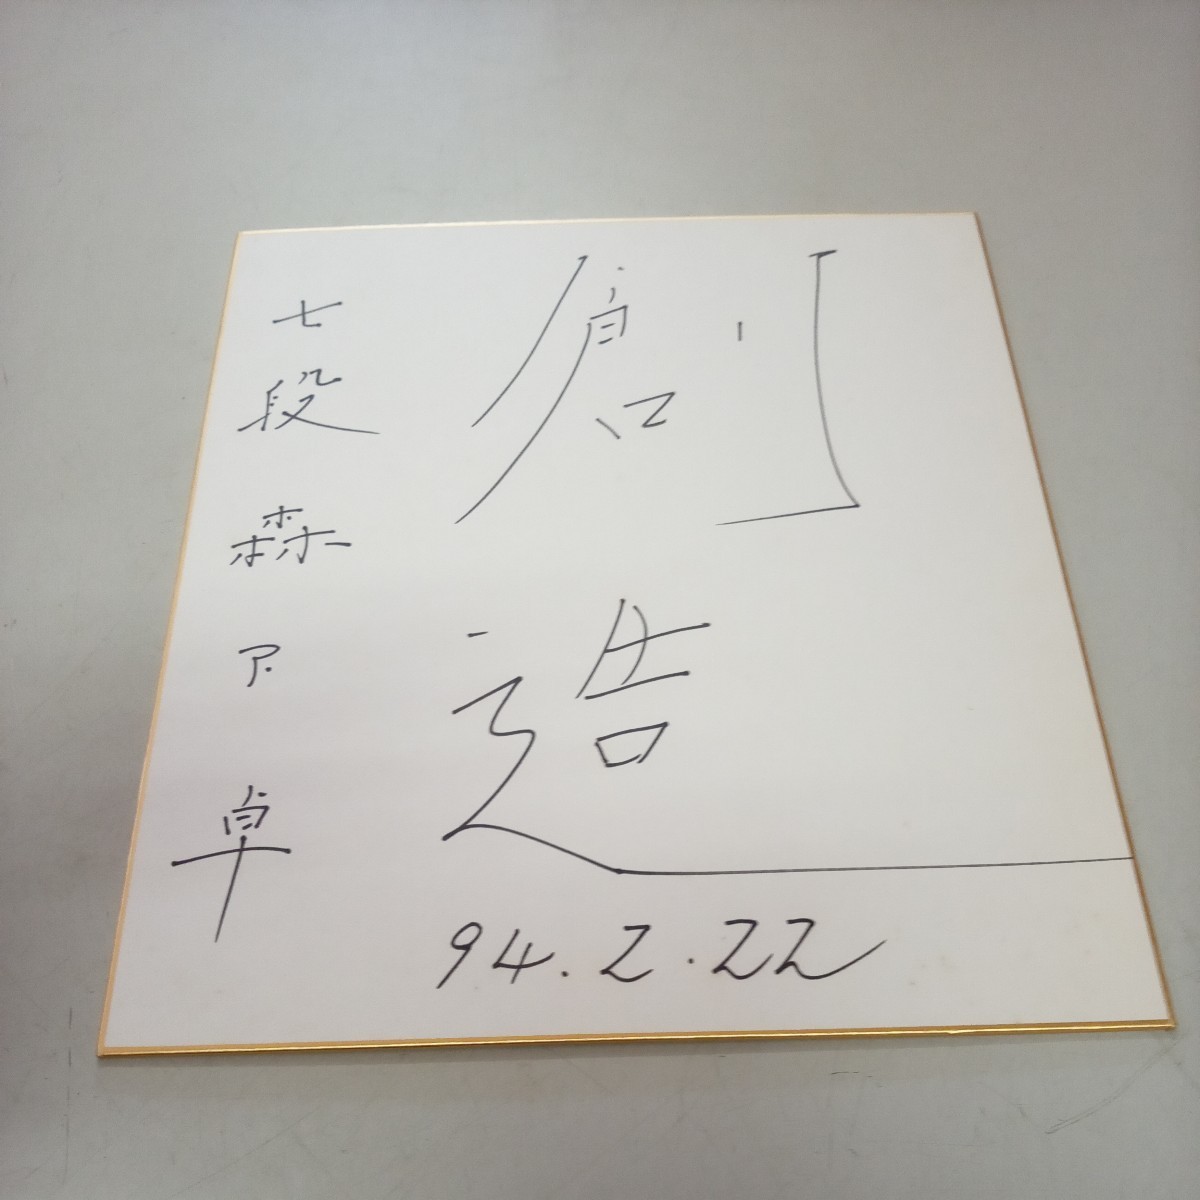 創造
七段 森下卓
94.2.22